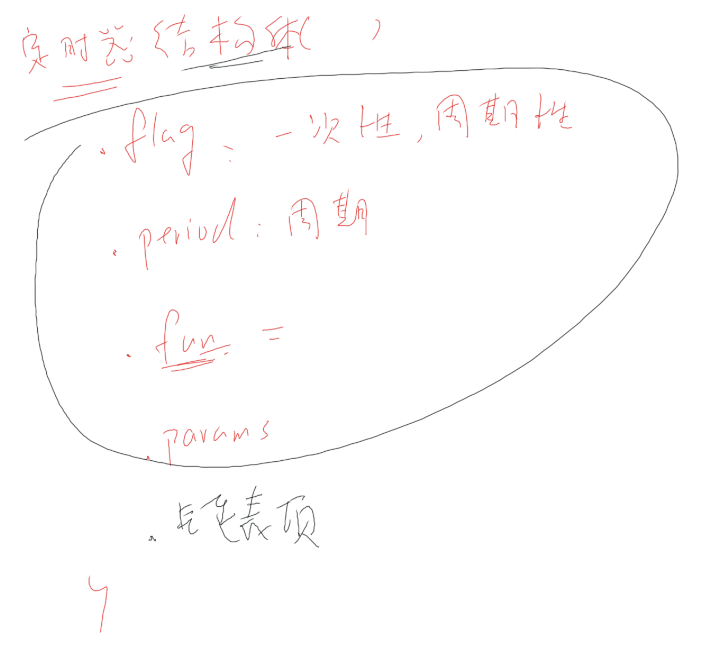 定时器结构体( )
.flag: 一次性,周期性
.period: 周期
.fun: =
.params
.链表项
}